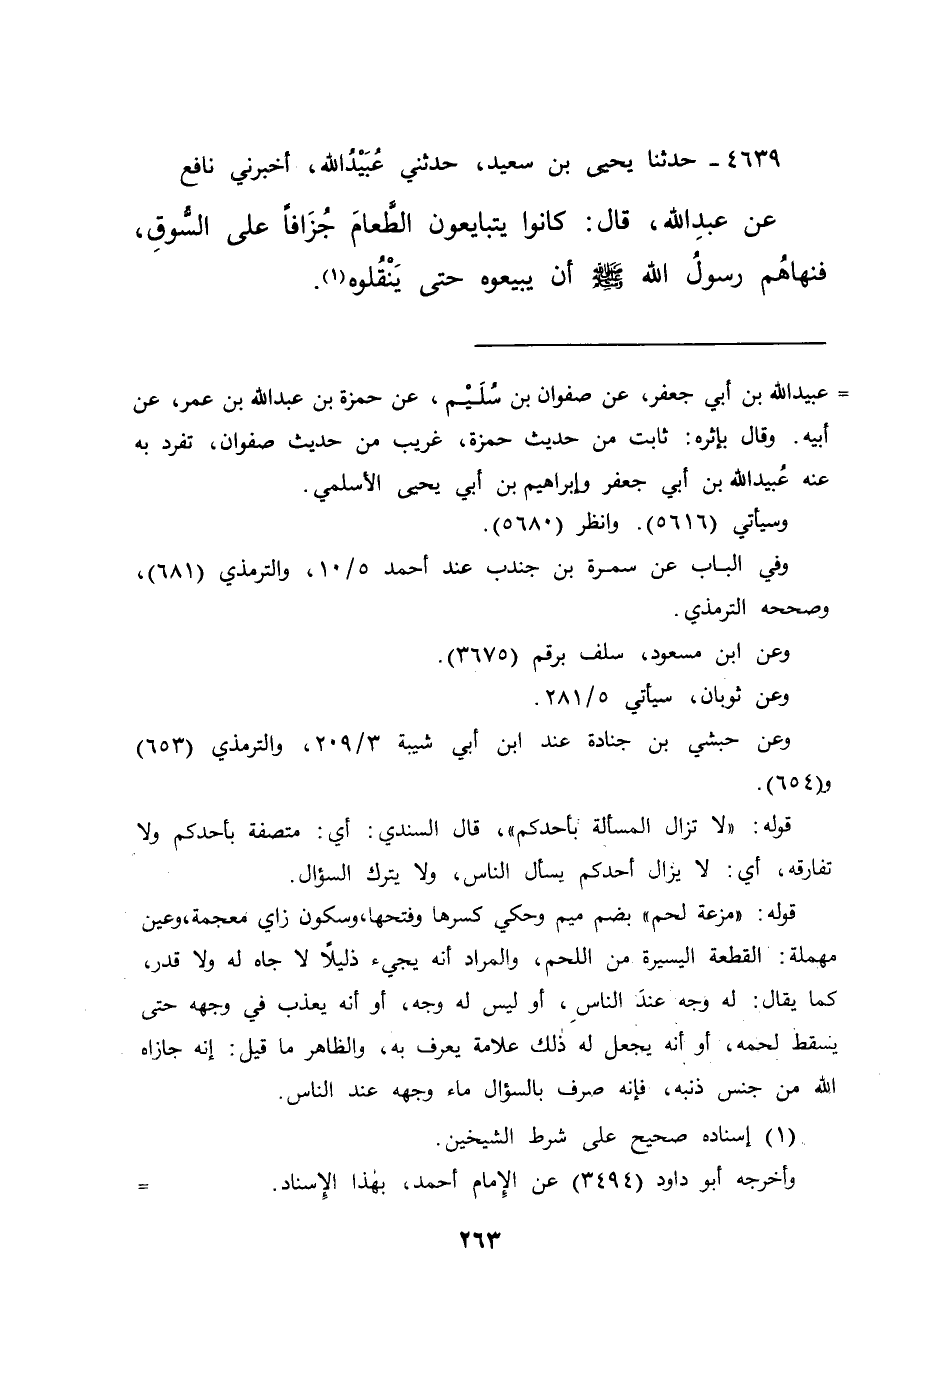 ٤٦٣٩ - حدثنا يحيى بن سعيد، حدثني عُبَيْدُالله، أخبرني نافع
عن عبدِالله، قال: كانوا يتبايعون الطَّعامَ جُزَافاً على السُّوقِ،
فنهاهُم رسولُ الله ﷺ أن يبيعوه حتى يَنْقُلوه(١).
= عبيدالله بن أبي جعفر، عن صفوان بن سُلَيْم، عن حمزة بن عبدالله بن عمر، عن
أبيه. وقال بإثره: ثابت من حديث حمزة، غريب من حديث صفوان، تفرد به
عنه عُبيدالله بن أبي جعفر وإبراهيم بن أبي يحيى الأسلمي.
وسيأتي (٥٦١٦). وانظر (٥٦٨٠).
وفي الباب عن سمرة بن جندب عند أحمد ١٠/٥، والترمذي (٦٨١)،
وصححه الترمذي.
وعن ابن مسعود، سلف برقم (٣٦٧٥).
وعن ثوبان، سيأتي ٢٨١/٥.
وعن حبشي بن جنادة عند ابن أبي شيبة ٢٠٩/٣، والترمذي (٦٥٣)
و(٦٥٤).
قوله: «لا تزال المسألة بأحدكم»، قال السندي: أي: متصفة بأحدكم ولا
تفارقه، أي: لا يزال أحدكم يسأل الناس، ولا يترك السؤال.
قوله: «مزعة لحم» بضم ميم وحكي كسرها وفتحها،وسكون زاي معجمة،وعين
مهملة: القطعة اليسيرة من اللحم، والمراد أنه يجيء ذليلًا لا جاه له ولا قدر،
كما يقال: له وجه عندَ الناسِ، أو ليس له وجه، أو أنه يعذب في وجهه حتى
يسقط لحمه، أو أنه يجعل له ذٰلك علامة يعرف به، والظاهر ما قيل: إنه جازاه
الله من جنس ذنبه، فإنه صرف بالسؤال ماء وجهه عند الناس.
(١) إسناده صحيح على شرط الشيخين.
وأخرجه أبو داود (٣٤٩٤) عن الإمام أحمد، بهٰذا الإسناد. =
٢٦٣